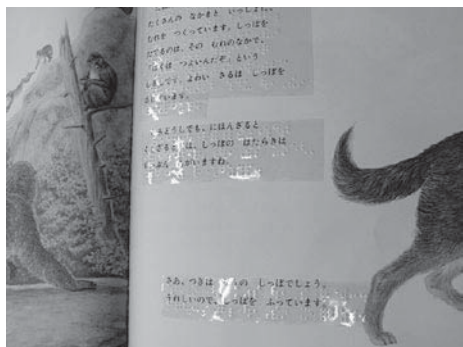 たくさんの なかまと いっしょに、
むれを つくって います。しっぽを
たてるのは、その むれの なかで、
つよいんだぞ、という
よわい さるは しっぽを
います。
にほんざると
は、しっぽの はたらきは
ちがいますね。
さあ、つぎは の しっぽでしょう。
うれしいので、しっぽを ふって います。